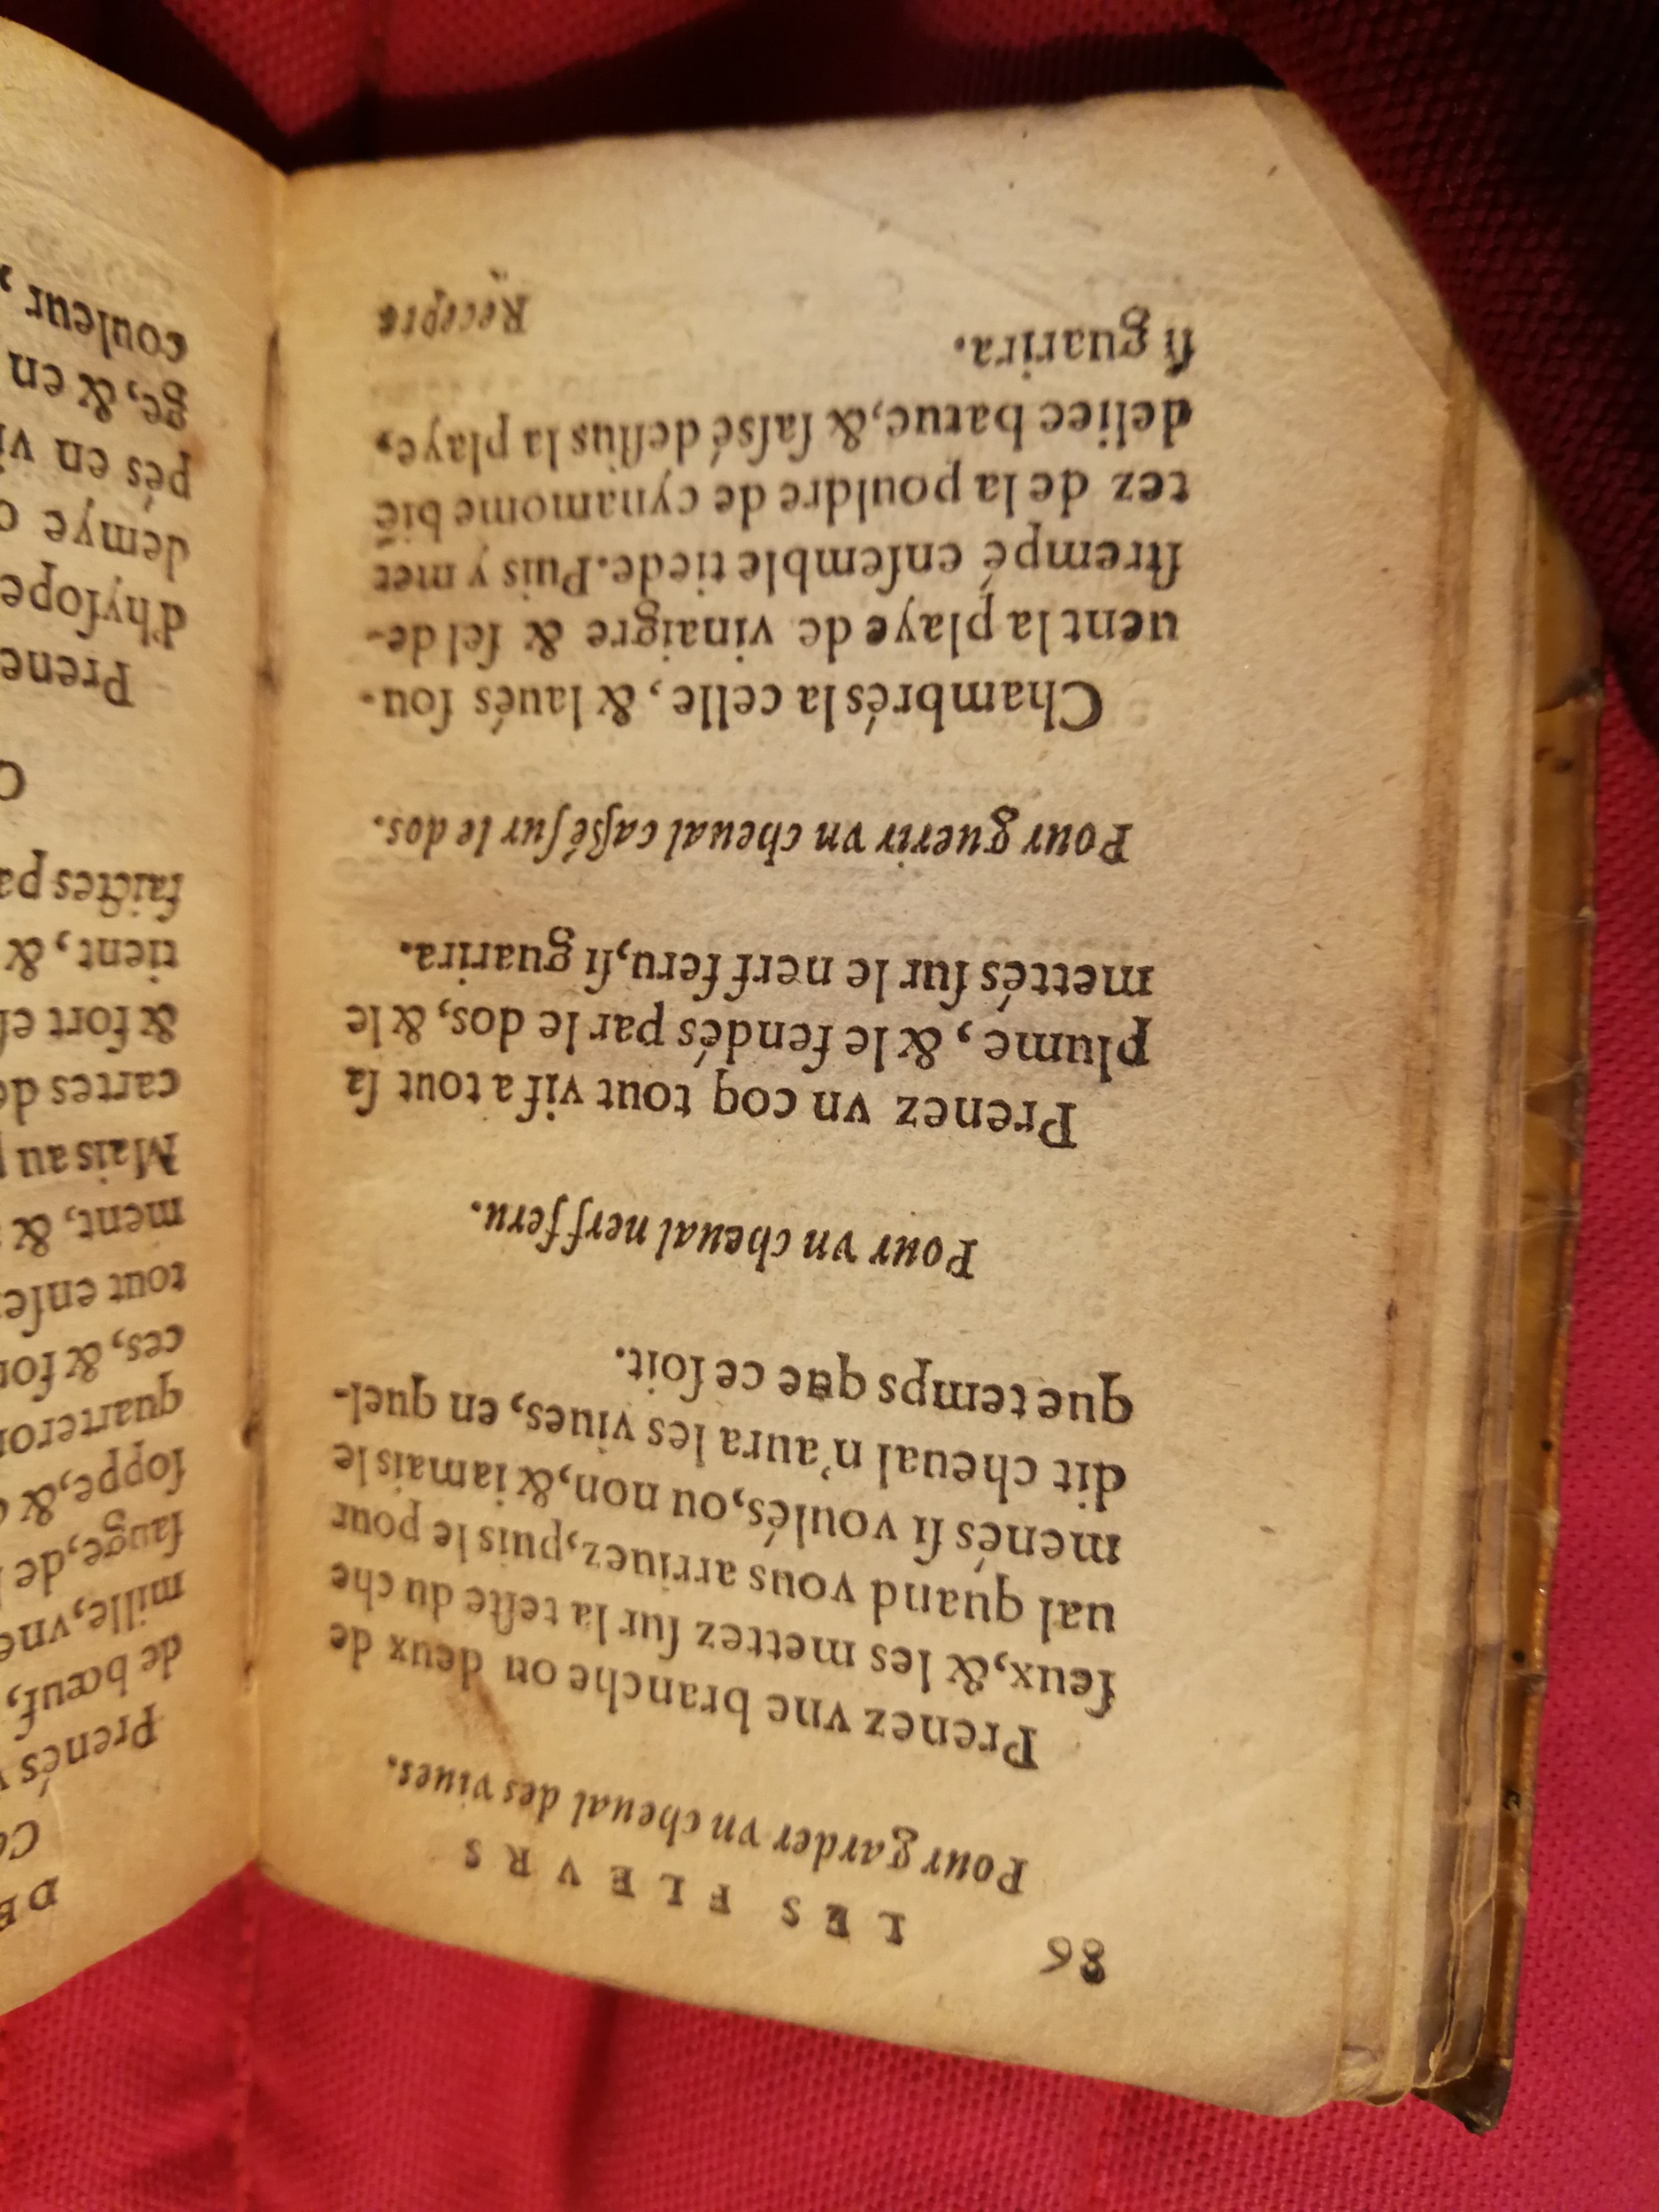 86
LES FLEVRS
Pour garder vn cheual des viues.
Prenez vne branche ou deux de
ſeux, & les mettez ſur la teſte du che
ual quand vous arriuez, puis le pour
menés ſi voulés, ou non, & iamais le
dit cheual n'aura les viues, en quel-
que temps que ce ſoit.
Pour vn cheual nerf feru.
Prenez vn coq tout vif a tout ſa
plume, & le fendés par le dos, & le
mettés ſur le nerf feru, ſi guarira.
Pour guerir vn cheual caſſé ſur le dos.
Chambrés la celle, & laués ſou-
uent la playe de vinaigre & ſel de-
ſtrempé enſemble tiede. Puis y met
tez de la pouldre de cynamome biē
deliee batue, & ſaſsé deſſus la playe,
ſi guarira.
Recepte
Prenés
de bœuf,
mille, vne
ſauge, de
ſoppe, &
quarteron
ces, & for
tout enſe
ment, &
Mais au
cartes de
& fort
tient, &
faictes pa
Prene
d'hyſope
demye
pés en vi
ge, & en
couleur,